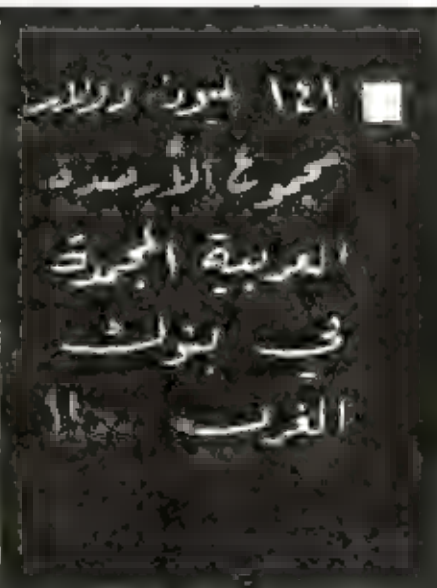 ١٤١ مليون دولار
مجموع الأرصدة
العربية المجمدة
في بنوك
الغرب !!